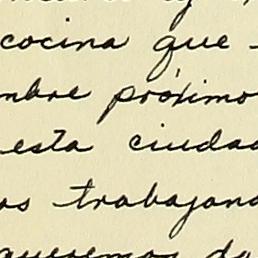 cocina que
mbre próximo
esta ciudad
os trabajand
queremos de